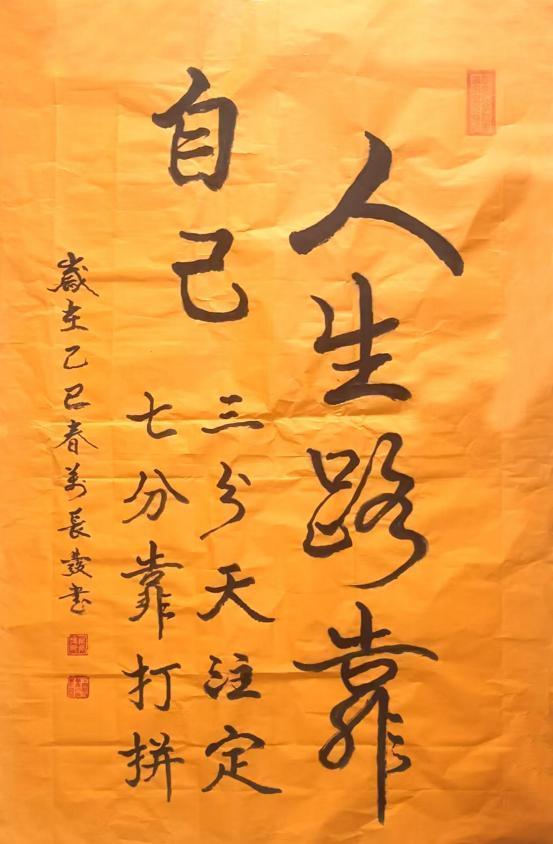 人生路靠
自己
三分天注定
七分靠打拼
歲在乙巳春萬長發書